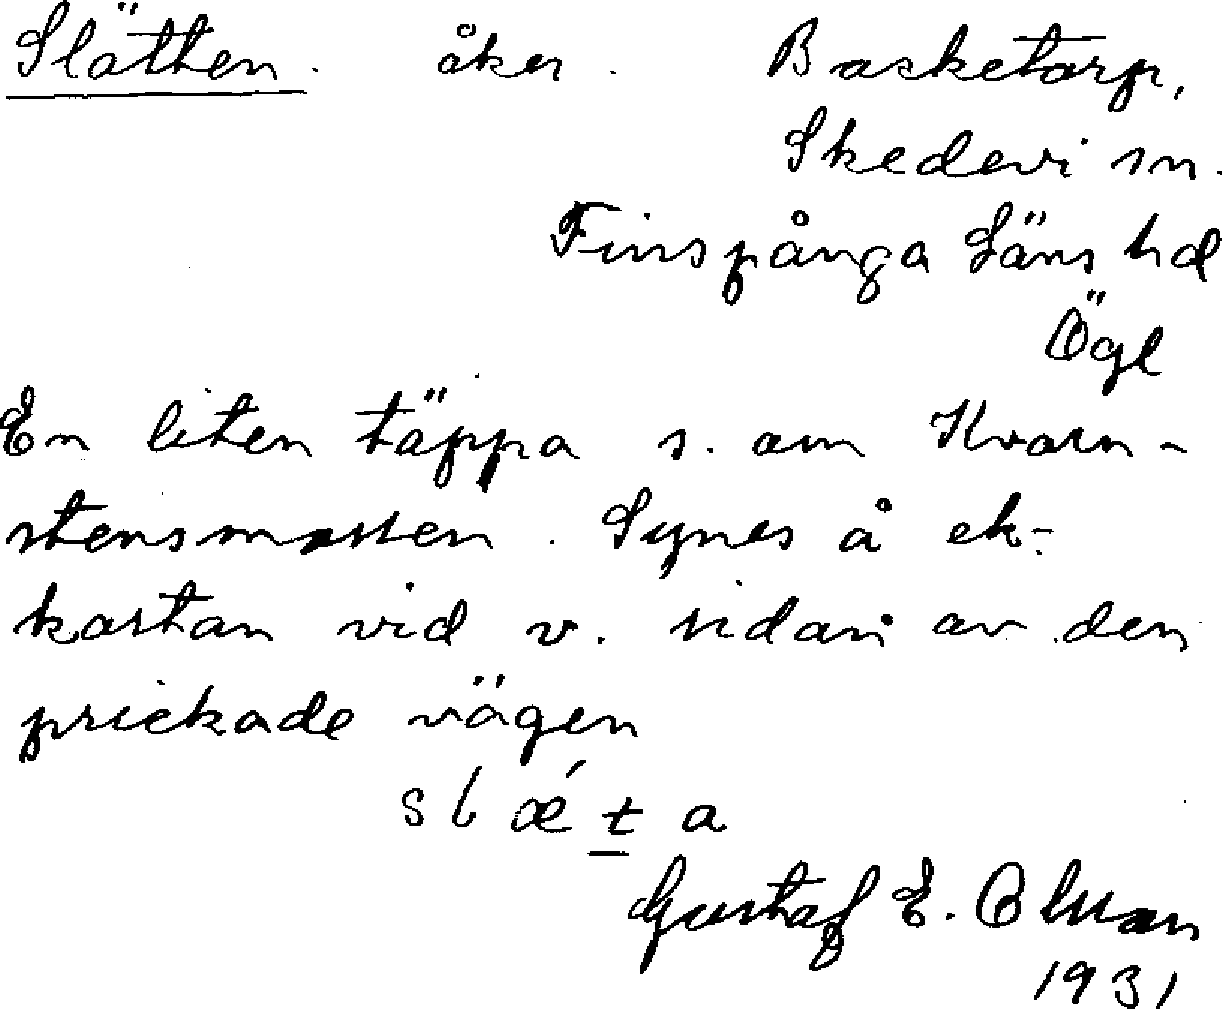 Slätten. åker. Basketorp,
Skedevi sn.
Finspånga Läns hd
Ögl
En liten täppa s. om Kvarn-
stensmossen. Synes å ek-
kartan vid v. sidan av den
prickade vägen
slǽt̲a
Gustaf E. Olsson
1931